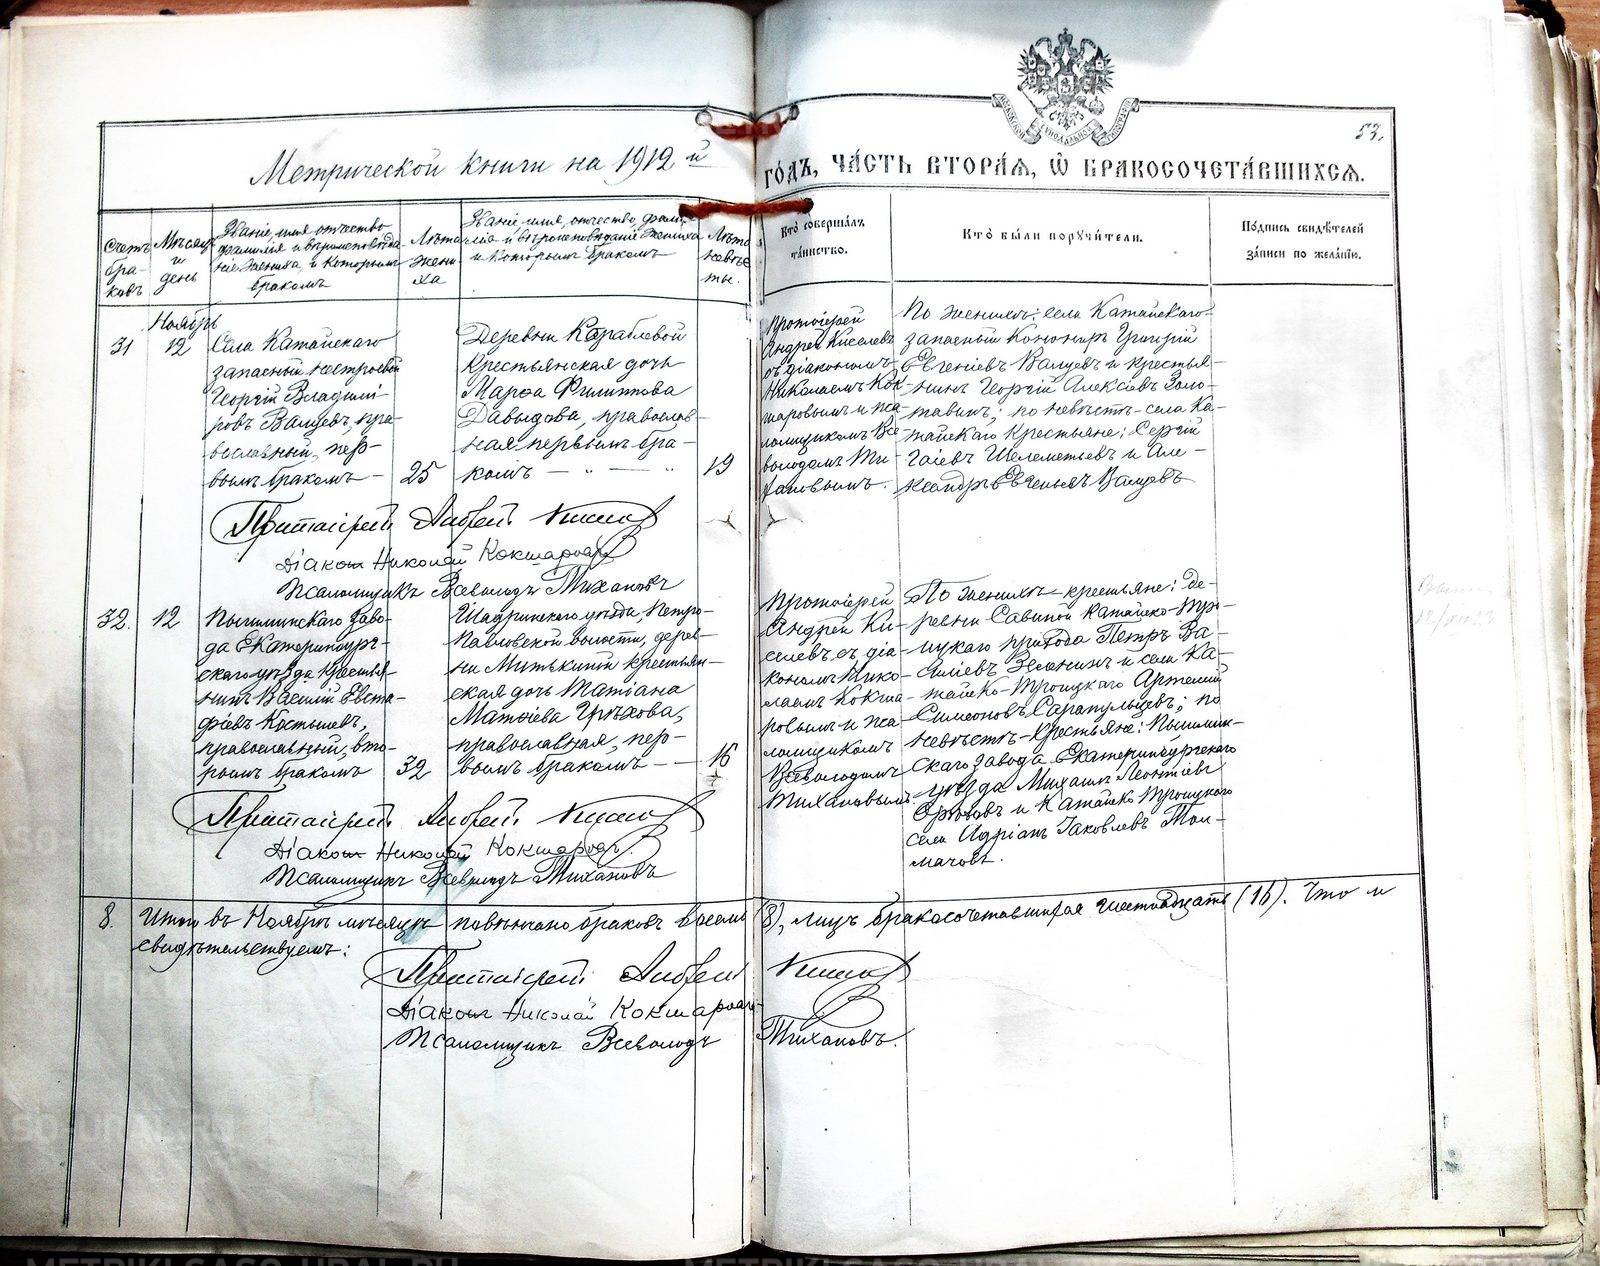 53.
Метрической книги на 1912 й годъ, часть вторая, ѡ бракосочетавшихся.
Счетъ браковъ
Мѣсяцъ и день
Званіе, имя, отчество
фамилія и вѣроисповѣда-
ніе жениха, и которымъ
бракомъ
Лѣта
жени-
ха
Званіе, имя, отчество, фами-
лія и вѣроисповѣданіе невѣсты
и которымъ бракомъ
Лѣта
невѣс-
ты.
Кто совершалъ
таинство.
Кто были поручители.
Подпись свидѣтелей
записи по желанію.
31
Ноябрь
12
Села Катайскаго
запасный нестроевой
Георгій Владимі-
ровъ Валуевъ, пра-
вославный, пер-
вымъ бракомъ —
25
Деревни Кораблевой
крестьянская дочь
Марѳа Филиппова
Давыдова, православ-
ная, первымъ бра-
комъ — " — "
19
Протоіерей
Андрей Киселевъ
съ діакономъ
Николаемъ Кок-
шаровымъ и пса-
ломщикомъ Все-
володомъ Ти-
хановымъ.
По женихѣ: села Катайскаго
запасный Канониръ Григорій
Евгеніевъ Валуевъ и крестья-
нинъ Георгій Алексѣевъ Золо-
тавинъ; по невѣстѣ — села Ка-
тайскаго крестьяне: Сергій
Гаіевъ Шелеметьевъ и Але-
ксандръ Евгеньевъ Валуевъ
Протоіерей Андрей Киселевъ
Діаконъ Николай Кокшаровъ
Псаломщикъ Всеволодъ Тихановъ
32.
12
Пышминскаго заво-
да Екатеринбург-
скаго уѣзда крестья-
нинъ Василій Евста-
фіевъ Костылевъ,
православный, вто-
рымъ бракомъ
32
Шадринскаго уѣзда, Петро-
павловской волости, дерев-
ни Митькиной крестьян-
ская дочь Татіана
Матѳіева Грѣхова,
православная, пер-
вымъ бракомъ — —
16
Протоіерей
Андрей Ки-
селевъ съ діа-
кономъ Нико-
лаемъ Кокша-
ровымъ и пса-
ломщикомъ
Всеволодомъ
Тихановымъ
По женихѣ — крестьяне: де-
ревни Савиной Катайско-Тро-
ицкаго прихода Петръ Ва-
силіевъ Зеленинъ и села Ка-
тайско-Троицкаго Артемій
Симеоновъ Сарапульцевъ; по
невѣстѣ — крестьяне: Пышмин-
скаго завода Екатеринбургскаго
уѣзда Михаилъ Леонтіевъ
Орловъ и Катайско Троицкаго
села Адріанъ Іаковлевъ Тол-
мачовъ.
Протоіерей Андрей Киселевъ
Діаконъ Николай Кокшаровъ.
Псаломщикъ Всеволодъ Тихановъ
8. Итого въ Ноябрѣ мѣсяцѣ повѣнчано браковъ восемь (8), лицъ бракосочетавшихся шестнадцать (16). Что и
свидѣтельствуемъ:
Протоіерей Андрей Киселевъ
Діаконъ Николай Кокшаровъ
Псаломщикъ Всеволодъ Тихановъ.